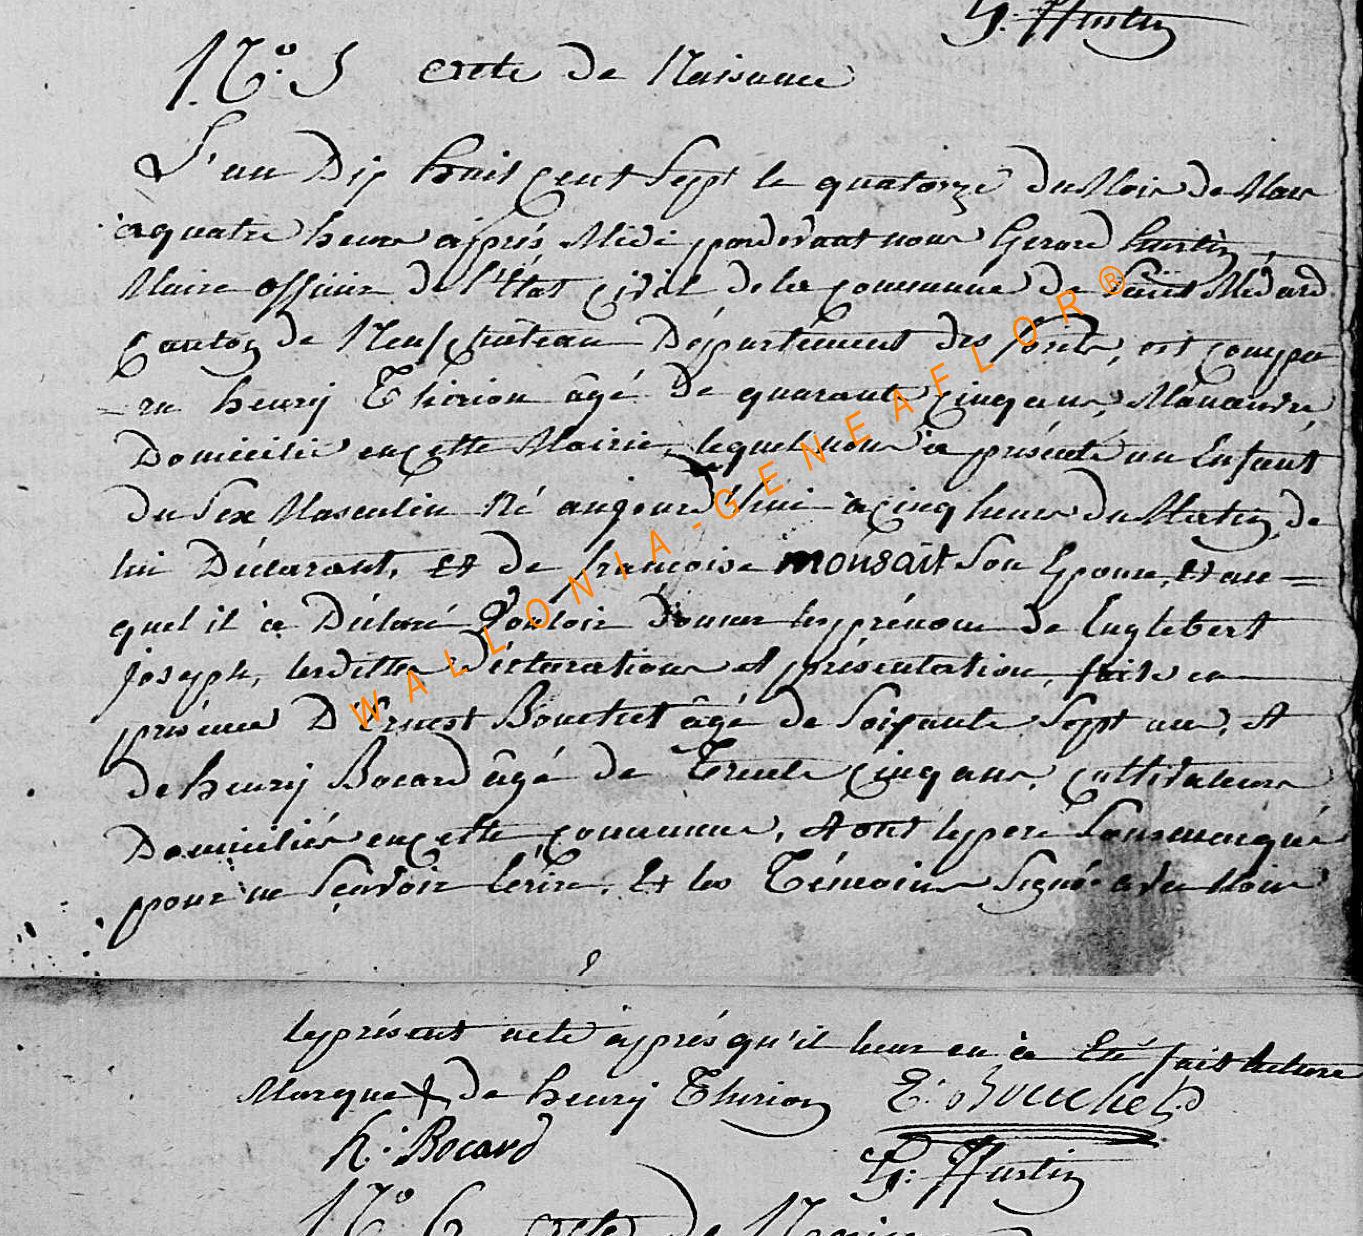 G. Hustin
N.º 5 acte de Naissance
L'an Dix huit cent Sept le quatorze du Mois de Mars
a quatre heures après Midi pardevant nous Gerard hustin
Maire officier de l'Etat civil de la commune de Saint Médard
Canton de Neufchateau Département des forêts, est compa
=ru henry Thirion âgé De quarante cinq ans, Manœuvre
Domicilié en cette Mairie, lequel nous à présenté un Enfant
du Sex Masculin Né aujourd'hui à cinq heures du Matin de
lui Déclarant, et de francoise monsait Son Epouse, et au=
quel il à Déclaré Vouloir donner les prénoms de Englebert
joseph, lesdittes déclaration et présentation faite en
présence D'Ernest Bouchet âgé de Soixante Sept ans, et
de henry Bocard âgé de Trente cinq ans, cultivateurs
Domiciliés en cette commune, et ont le pere Sousmarqué
pour ne Sçavoir Ecrire, Et les Témoins Signé avec Nous
le présent acte après qu'il leur en à Eté fait Lecture
Marque de henry Thirion E: Bouchet
h: Bocard G: Hustin
N.º 6 acte de
WALLONIA-GENEAFLOR®